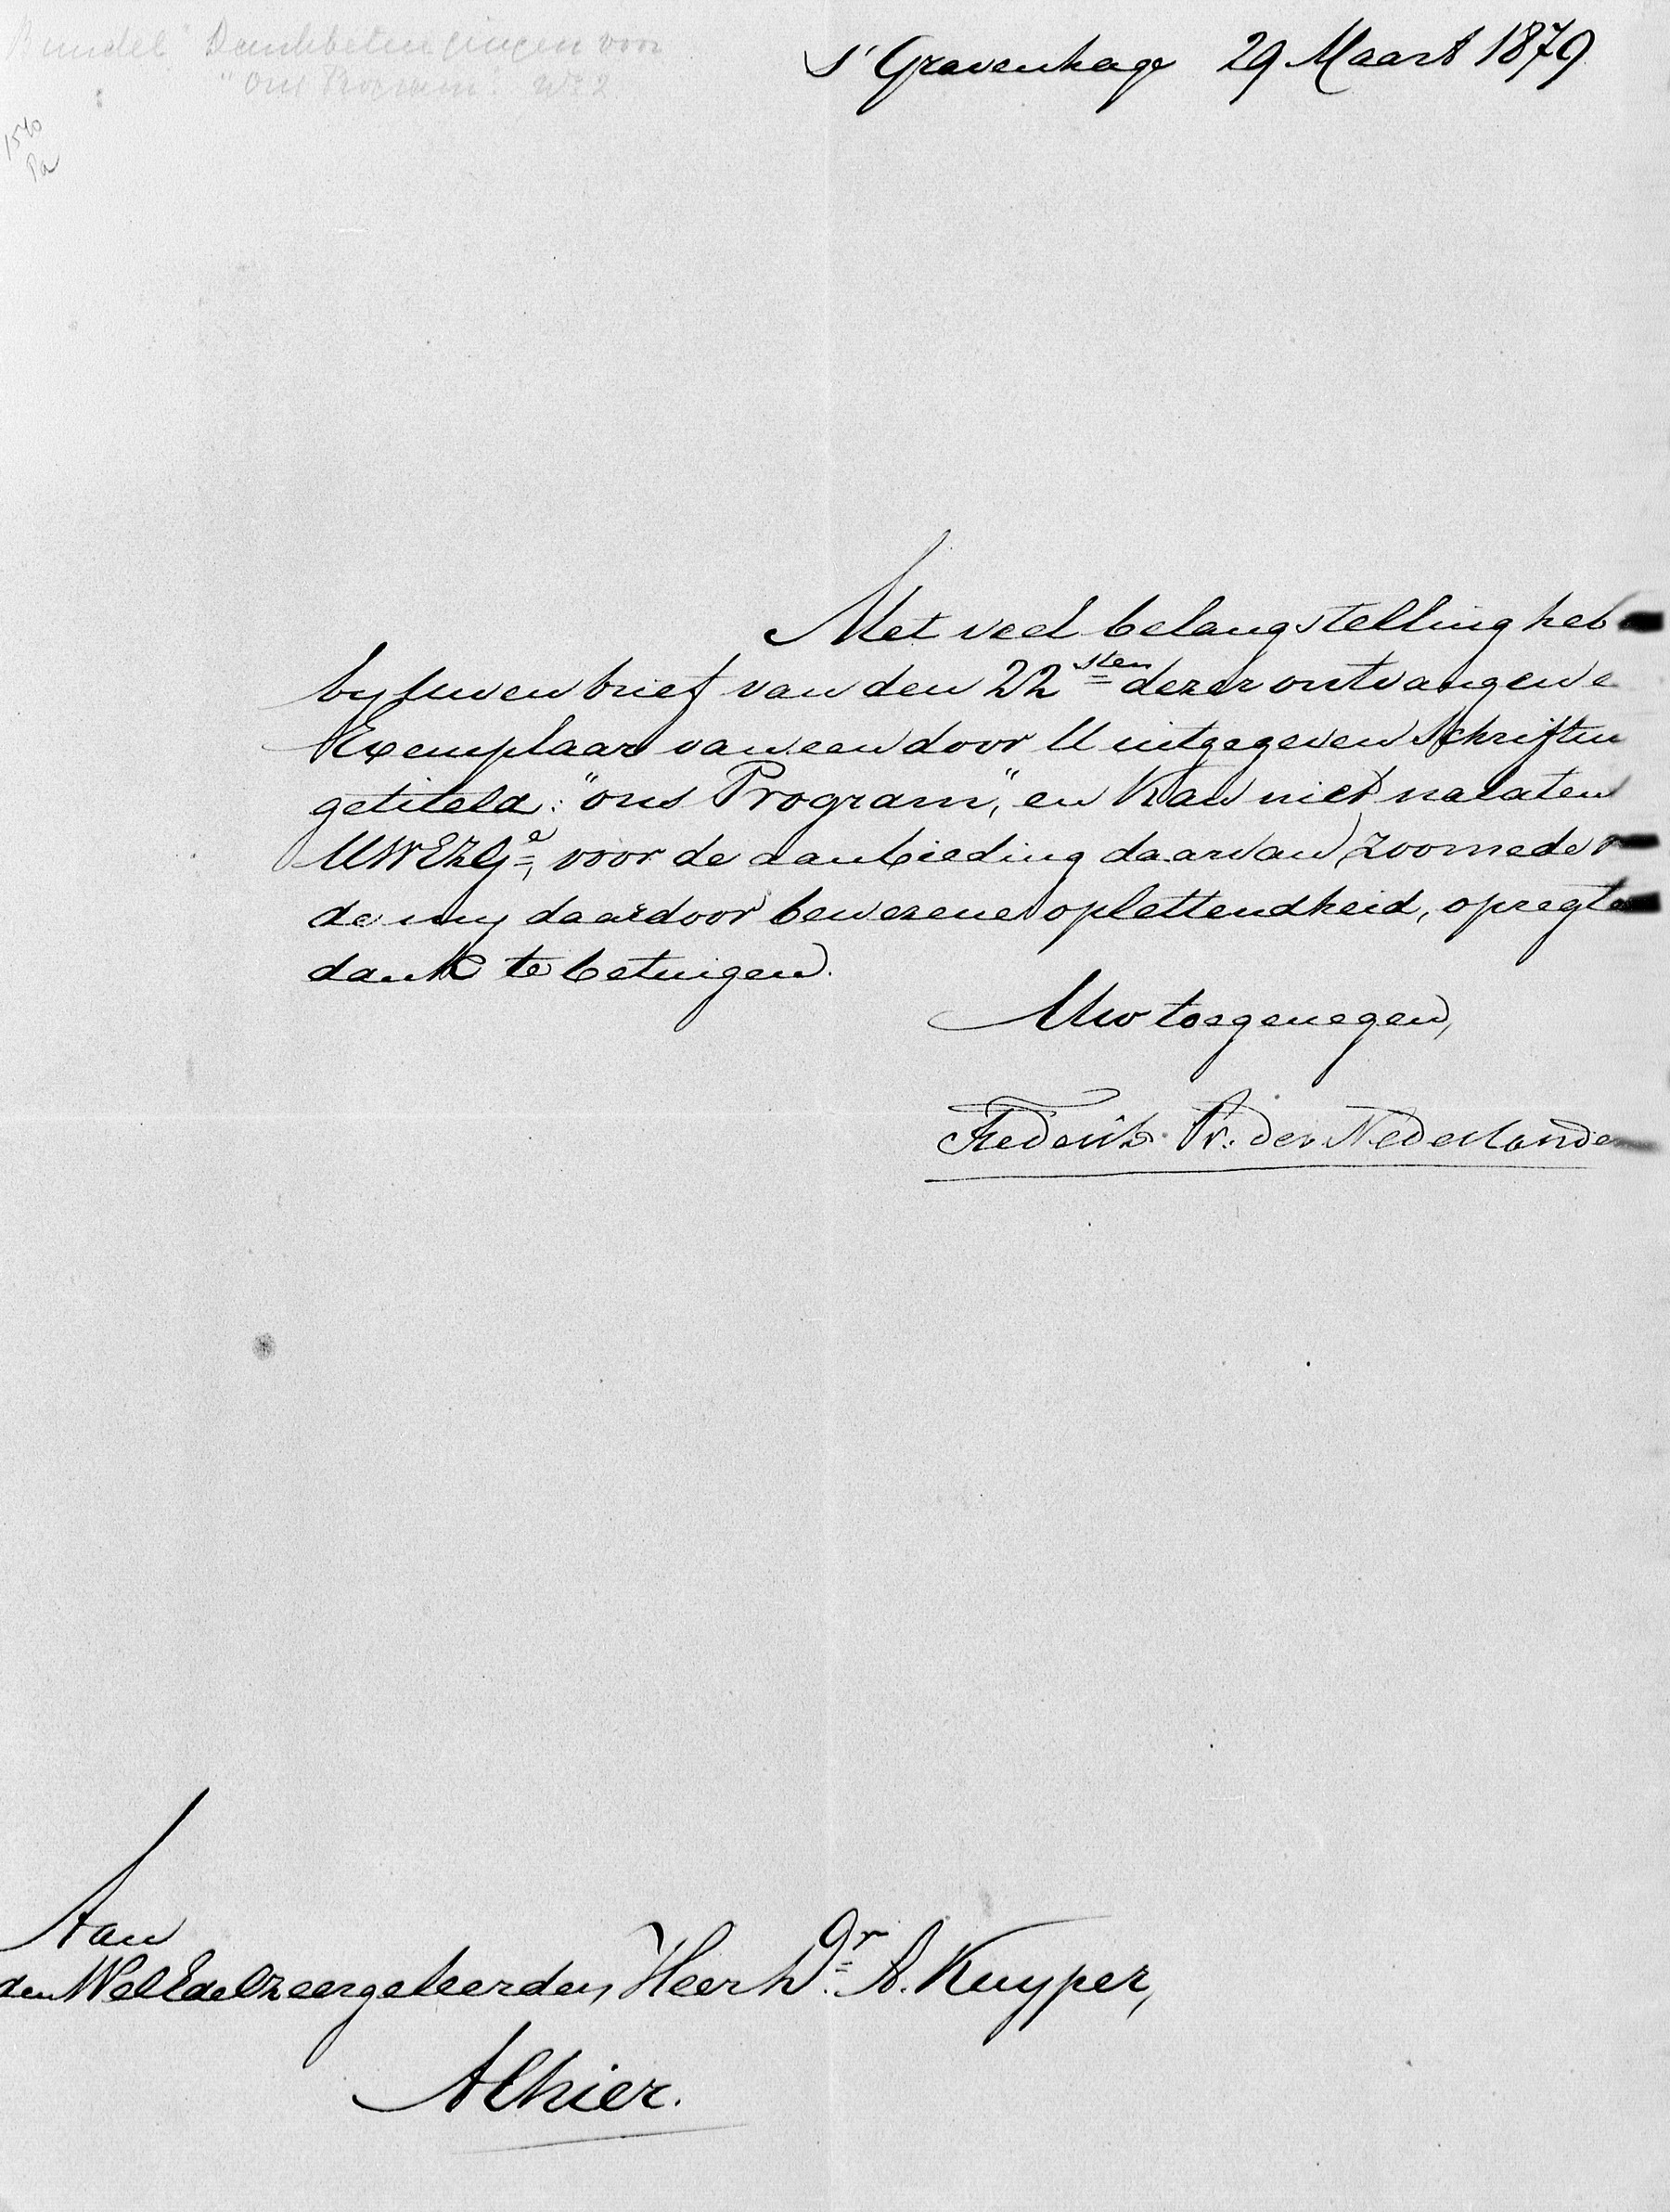 Bundel Dankbetuigingen voor
"Ons Program". No 2
1540
Pa
s'Gravenhage 29 Maart 1879
Met veel belangstelling heb
by Uwen brief van den 22sten dezer ontvangen e
Exemplaar van een door U uitgegeven Schriften
getiteld: "ons Program", en kan niet nalaten
UWEZGe, voor de aanbieding daarvan, zoomede v
de my daardoor bewezene oplettendheid, opregte
dank te betuigen.
Uw toegenegen,
Frederik Pr. der Nederlande
Aan
den WelEdelZeergeleerden Heer Dr. A. Kuyper,
Alhier.